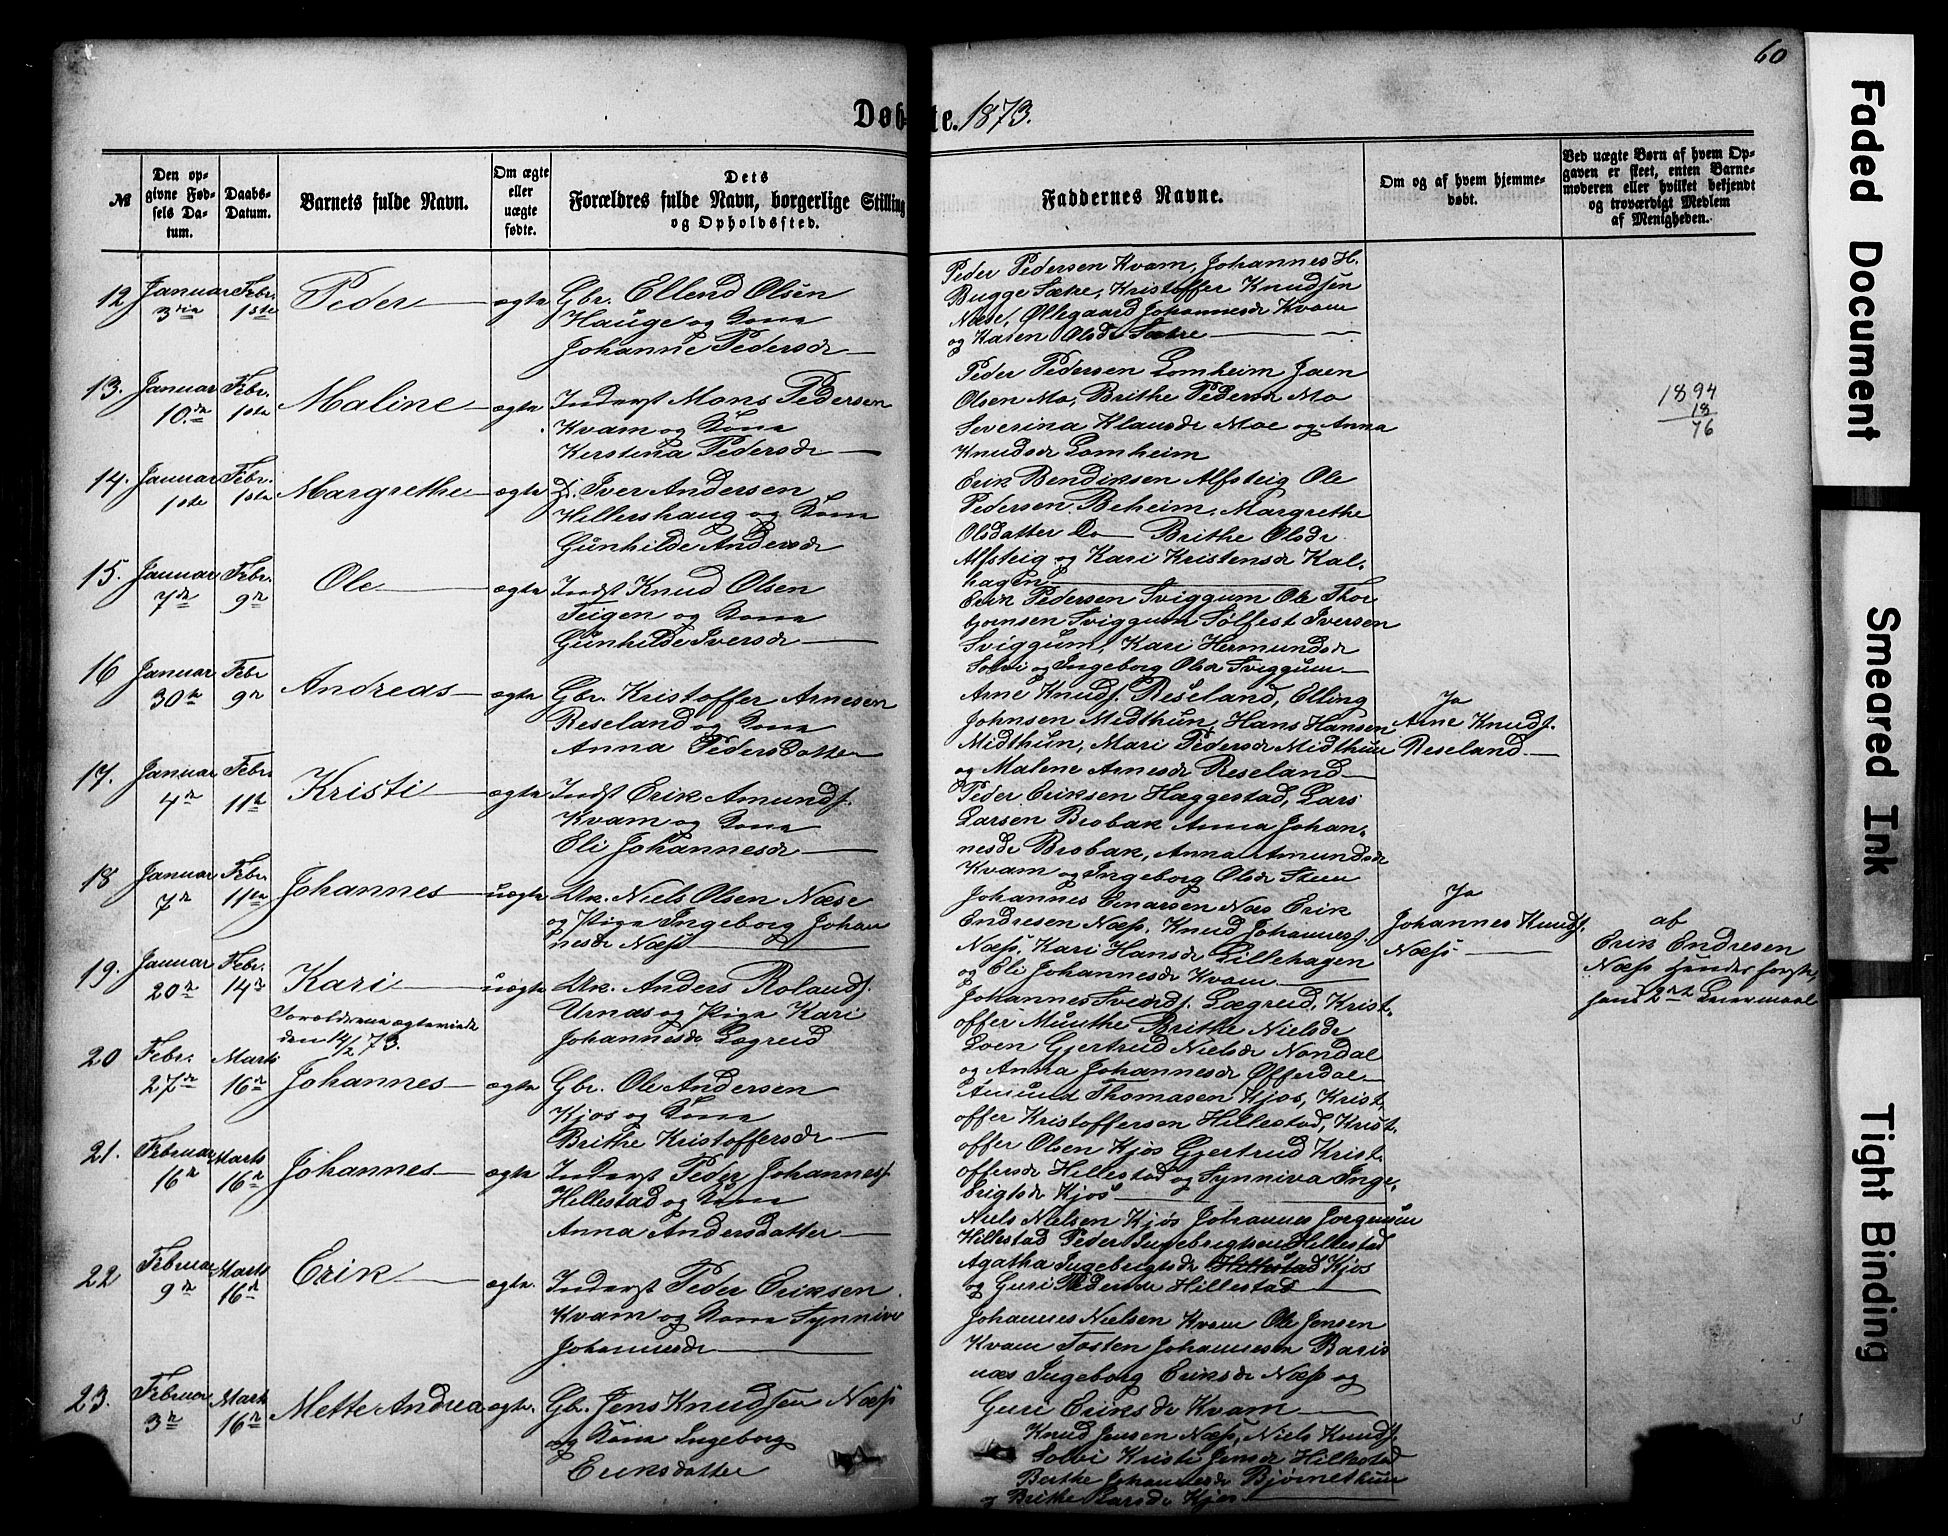 60
Døbte. 1873.
№
Den opgivne Fødsels Datum.
Daabs-Datum.
Barnets fulde Navn.
Om ægte eller uægte fødte.
Dets Forældres fulde Navn, borgerlige Stilling og Opholdssted.
Faddernes Navne.
Om og af hvem hjemmedøbt.
Ved uægte Børn af hvem Opgaven er skeet, enten Barnemoderen eller hvilket bekjendt og troværdigt Medlem af Menigheden.
12 Januar 3die Febr. 1ste Peder ægte Gbr. Ellend Olsen
Hauge og Kone
Johanne Pedersdr
Peder Pedersen Kvam, Johannes H.
Bugge Sætre, Kristoffer Knudsen
Næse, Øllegaard Johannesdr Kvam
og Karen Olsdr Sætre
13. Januar 10de Febr. 1ste Maline ægte Inderst Mons Pedersen
Kvam og Kone
Kerstina Pedersdr
Peder Pedersen Lomheim Jaen
Olsen Mo, Brithe Pedersdr Mo
Severina Klausdr Moe og Anna
Knudsdr Lomheim
1894
18
76
14. Januar 1ste Febr. 1ste Margrethe ægte Iver Andersen
Hillershaug og Kone
Gunhilde Andersdr
Erik Bendiksen Alfsteig Ole
Pedersen Beheim, Margrethe
Olsdatter Do Brithe Olsdr
Alfsteig og Kari Kristensdr Kal-
hagen
15. Januar 7de Febr. 9de Ole ægte Indst Knud Olsen
Teigen og Kone
Gunhilde Iversdr
Erik Pedersen Sviggum Ole Thor
bjornsen Sviggum Sølfest Iversen
Sviggum, Kari Hermundsdr
Solvi og Ingeborg Olsdr Sviggum
16 Januar 30te Febr 9de Andreas ægte Gbr. Kristoffer Arnesen
Reseland og Kone
Anna Pedersdatter
Arne Knuds. Reseland, Elling
Johnsen Midthun, Hans Hansen
Midthun, Mari Pedersdr Midthun
og Malene Arnesdr Reseland
Ja
Arne Knuds.
Reseland
17. Januar 4de Febr. 11te Kristi ægte Indst Erik Amunds.
Kvam og Kone
Eli Johannesdr
Peder Eriksen Hæggestad, Lars
Larsen Brobak Anna Johan-
nesdr Brobak, Anna Amundsdr
Kvam og Ingeborg Olsdr Steen
18 Januar 7de Febr. 11te Johannes uægte Uk. Niels Olsen Næse
og Pige Ingeborg Johan
nesdr Næss
Johannes Einarsen Næs Erik
Endresen Næss, Knud Johanness.
Næss, Kari Hansdr Lillehagen
og Eli Johannesdr Kvam
Ja
Johannes Knuds.
Næss
af
Erik Endresen
Næss hendes første,
hans 2det Leiermaal
19. Januar 20de Febr. 14de Kari uægte Uk. Anders Rolands.
Urnæs og Pige Kari
Johannesdr Lægreid
Forældrene ægteviede
den 14/2 73.
Johannes Svends. Lægreid, Krist-
offer Munthe Brithe Nielsdr
Loen Gjertrud Nielsdr Nondal
og Anna Johannesdr Øfferdal
20 Febr. 27de Marts 16de Johannes ægte Gbr. Ole Andersen
Kjos og Kone
Brithe Kristoffersdr
Amund Thomasen Kjos, Krist,
offer Kristoffersen Hillestad, Krist-
offer Olsen Kjos Gjertrud Krist-
offersdr Hillestad og Synniva Inge-
brigtsdr Kjos
21. Februar 16de Marts 16de Johannes ægte Inderst Peder Johanness
Hillestad og Kone
Anna Andersdatter
Niels Nielsen Kjøs Johannes Jorgensen
Hillestad Peder Ingebrigtsen Hillestad
Agatha Ingebrigtsdr Hillestad Kjos
og Guri Pedersdr Hillestad
22 Februar 9de Marts 16de Erik ægte. Inderst Peder Eriksen
Kvam og Kone Synniva
Johannesdr
Johannes Nielsen Kvam Ole Jensen
Kvam Tosten Johannesen Baris
næs Ingeborg Eriksdr Næss og
Guri Eriksdr Kvam
23. Februar 3de Marts 16de Mette Andrea ægte. Gbr. Jens Knudsen Næss
og Kone Ingeborg
Eriksdatter
Knud Jensen Næss, Niels Knuds.
Solvi Kristi Jensdr Hillestad
Berthe Johannesdr Bjørnethun
og Brithe Larsdr Kjos
Faded Document
Smeared Ink
Tight Binding